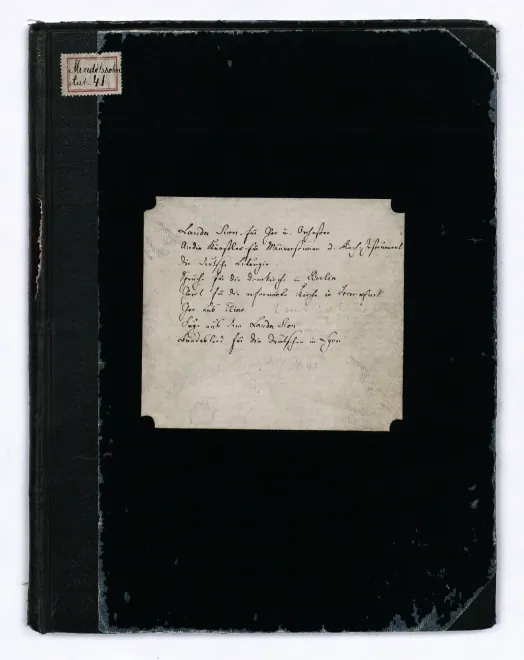 Mendelssohn
Aut. 41
Lauda Sion für Chor u. Orchester
An die Künstler für Männerstimmen u.
die deutsche Liturgie
Sprüche für die Domkirche in Berlin
für die reformirte Kirche in Frankfurt
Chor aus Elias
Fuge aus dem Lauda Sion
Bundeslied für die Deutschen in Lyon